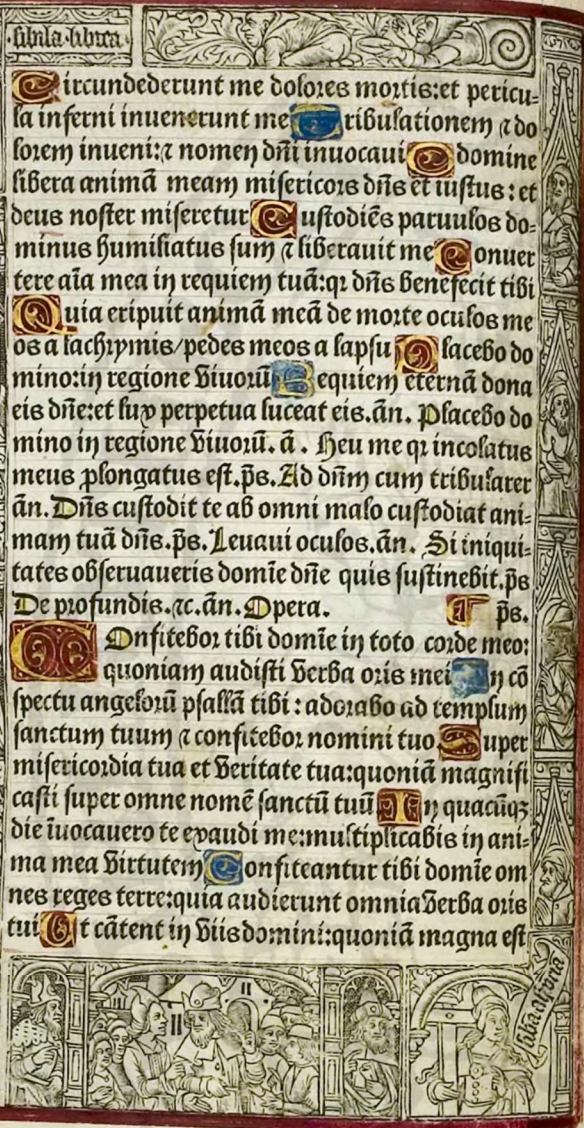 ·sibila·libica·
Circundederunt me dolores mortis:et pericu-
la inferni inuenerunt me Tribulationem ⁊ do
lorem inueni:⁊ nomen dñi inuocaui O domine
libera animã meam misericors dñs et iustus: et
deus noster miseretur Custodiẽs paruulos do-
minus humiliatus sum ⁊ liberauit me Conuer
tere aĩa mea in requiem tuã:qr dñs benefecit tibi
Quia eripuit animã meã de morte oculos me
os a lachrymis/pedes meos a lapsu Placebo do
mino:in regione viuorũ Requiem eternã dona
eis dñe:et lux perpetua luceat eis.ãn. Placebo do
mino in regione viuorũ. ã. Heu me qr incolatus
meus plongatus est.p̃s. Ad dñm cum tribularer
ãn. Dñs custodit te ab omni malo custodiat ani-
mam tuã dñs.p̃s. Leuaui oculos.ãn. Si iniqui-
tates obseruaueris domĩe dñe quis sustinebit.p̃s
De profundis.⁊c.ãn. Opera. p̃s.
COnfitebor tibi domĩe in toto corde meo:
quoniam audisti verba oris mei In cõ
spectu angelorũ psallã tibi: adorabo ad templum
sanctum tuum ⁊ confitebor nomini tuo Super
misericordia tua et veritate tua:quoniã magnifi
casti super omne nomẽ sanctũ tuũ In quacũqꝫ
die ĩuocauero te exaudi me:multiplicabis in ani-
ma mea virtutem Confiteantur tibi domĩe om
nes reges terre:quia audierunt omnia verba oris
tui Et cãtent in viis domini:quoniã magna est